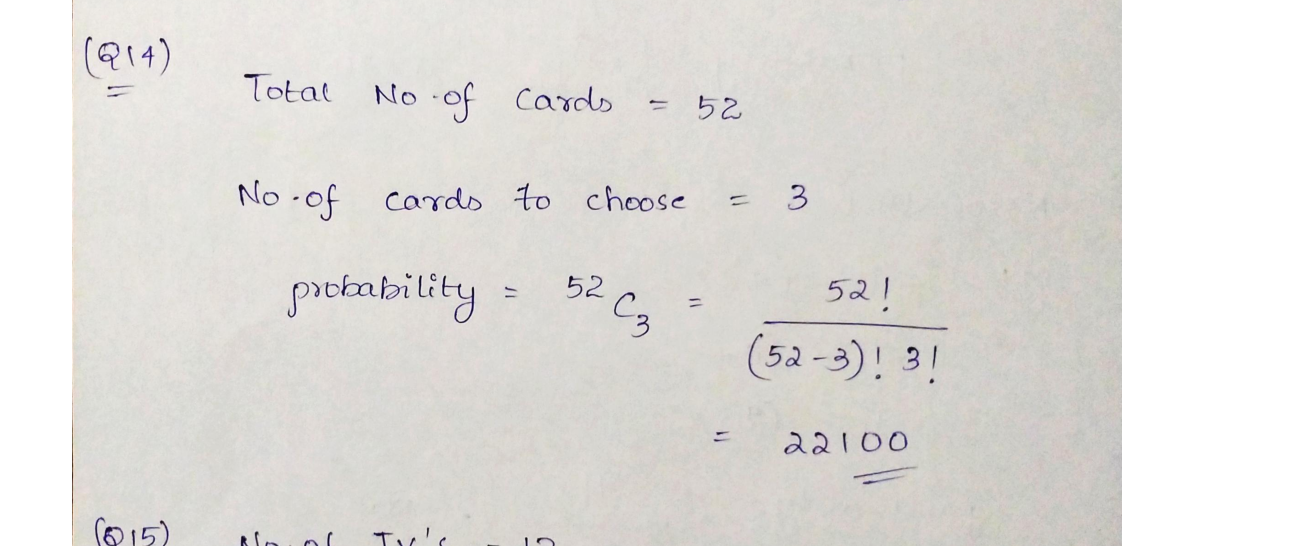 (Q14)
Total No.of cards = 52
No.of cards to choose = 3
probability = 52C3 = 52! / (52-3)! 3!
= 22100
(Q15) No.of TV's = 12